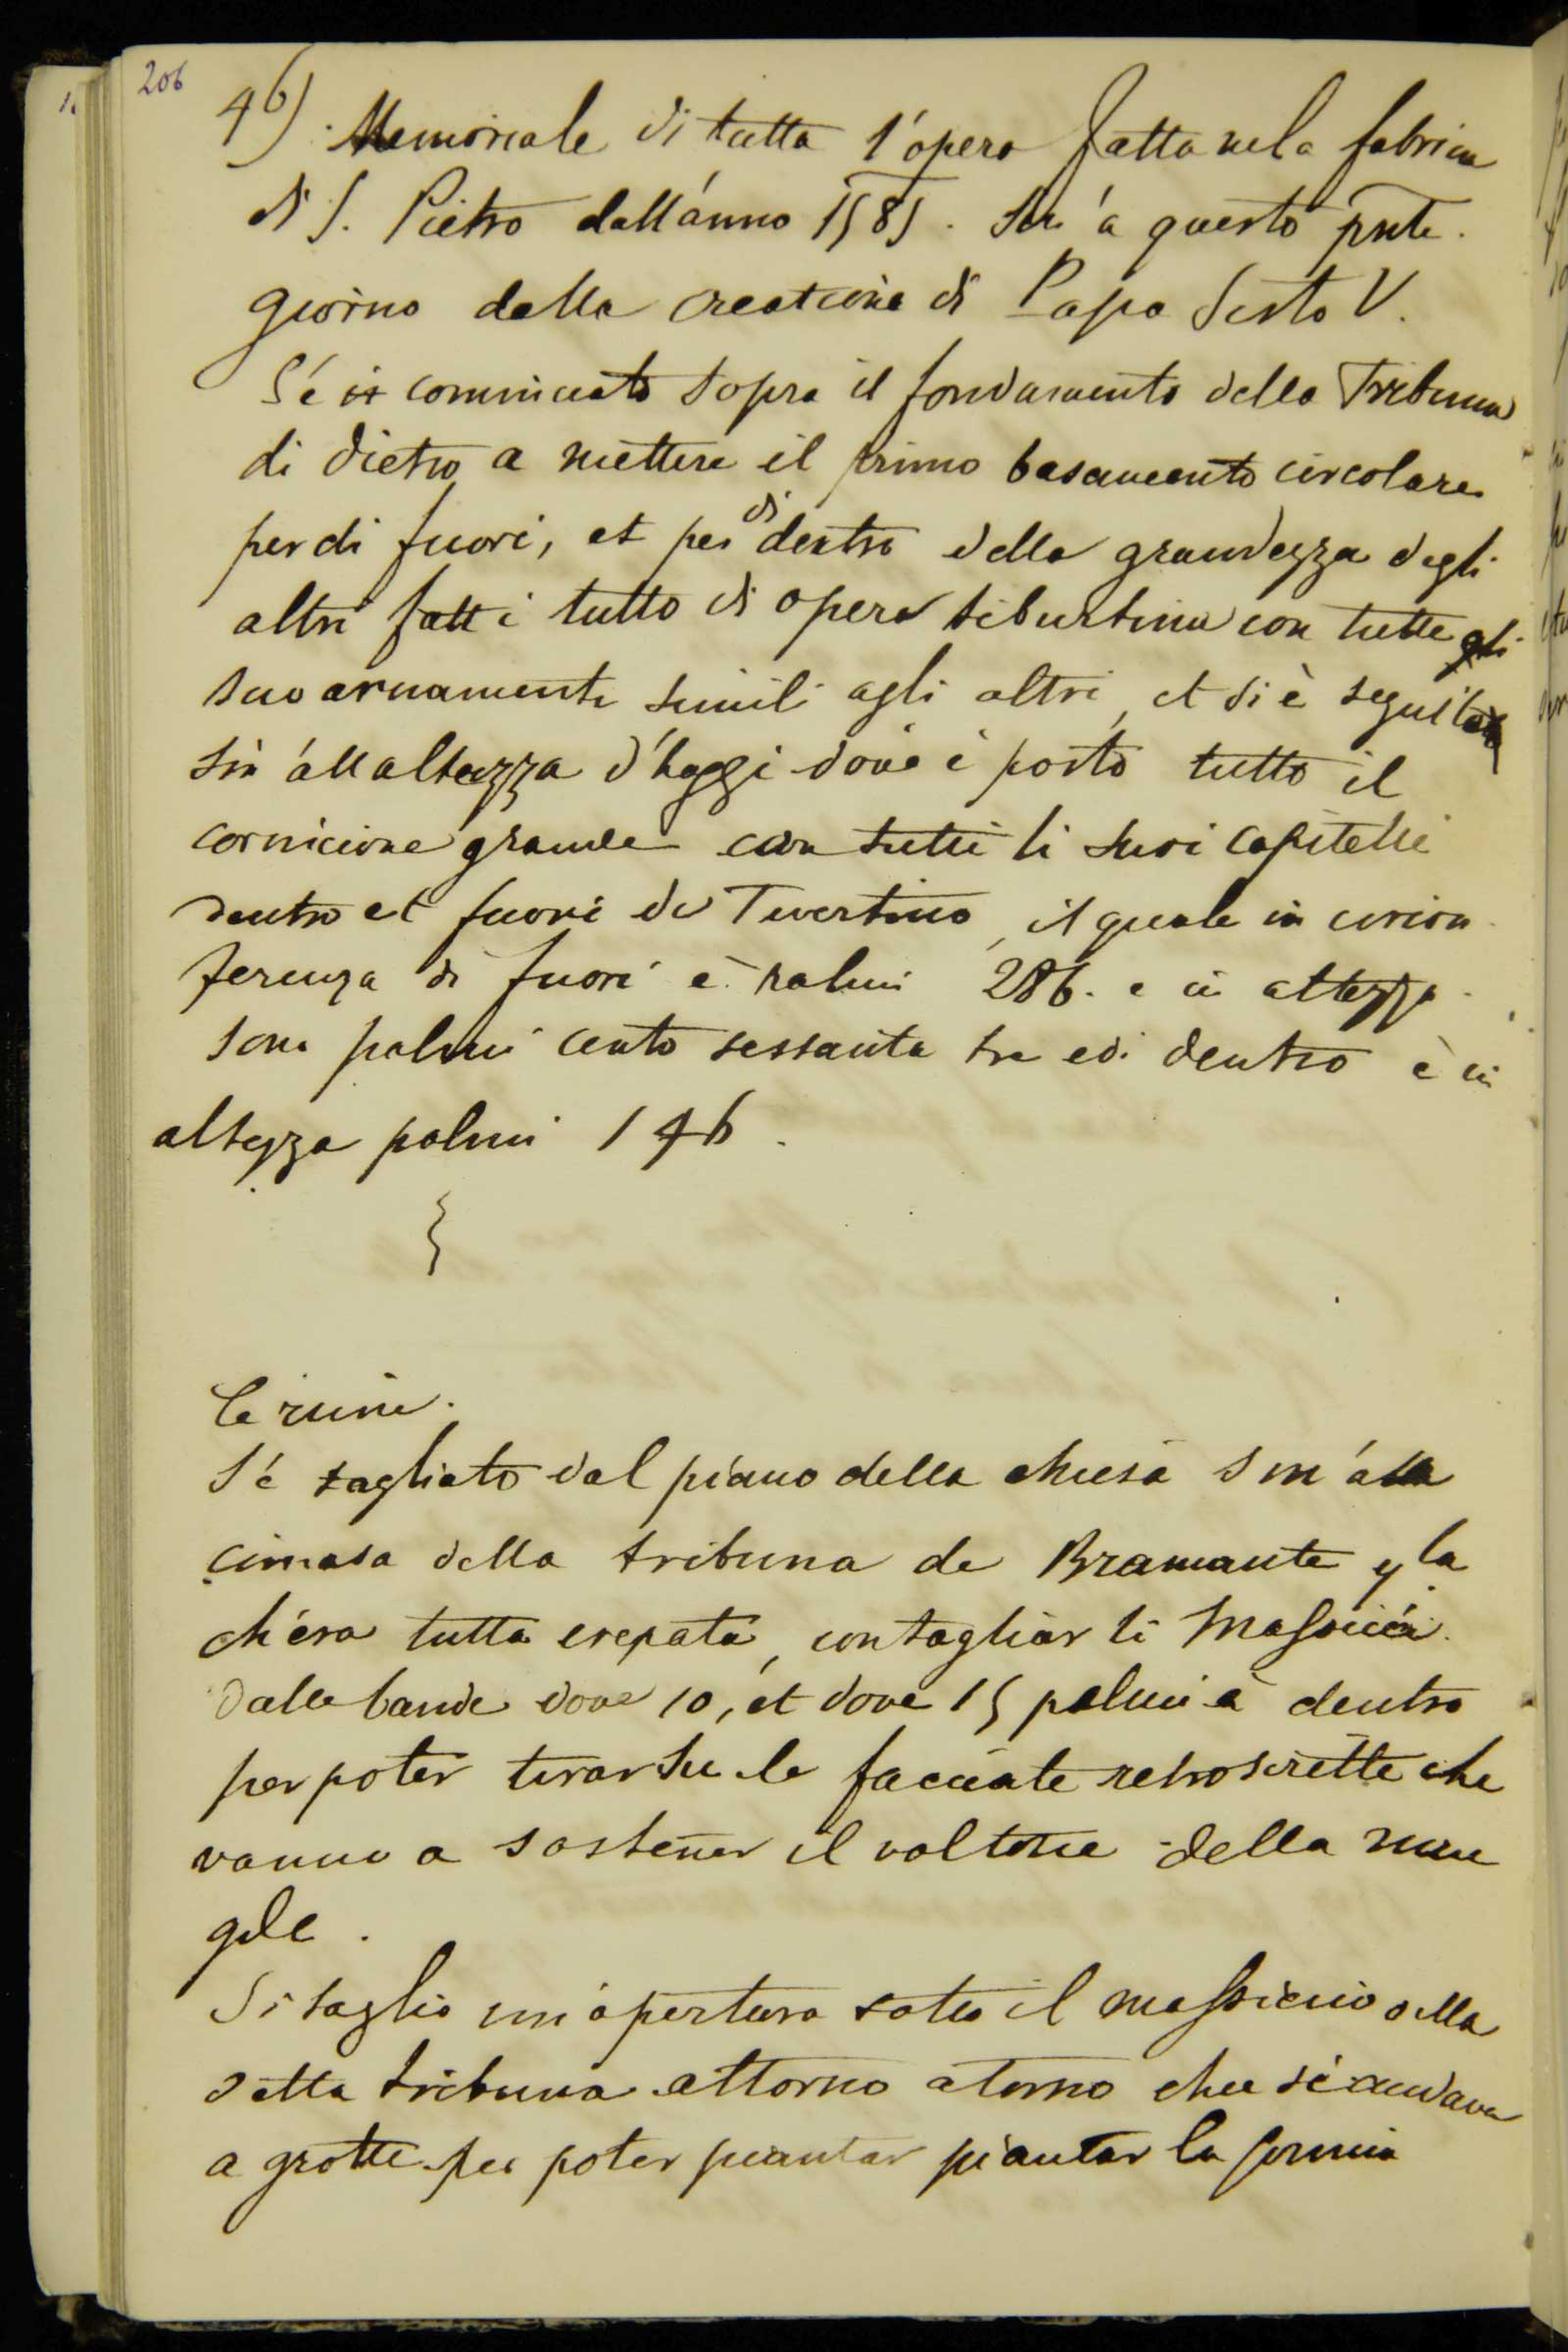 206
46) Memoriale di tutta l'opera fatta nela fabrica
di S. Pietro dall'anno 1585. sin'a questo pnte.
giorno della creatione di Papa Sisto V.
S'é in cominciato sopra il fondamento della Tribuna
di dietro a mettere il primo basamento circolare
per di fuori, et per di dentro della grandezza degli
altri fatti tutto di opera tiburtina con tutte gli
suo arnamenti simili agli altri, et si è seguitato
sin all altezza d'hoggi dove è posto tutto il
cornicione grande con tutti li suoi capitelli
dentro et fuori de Tivertino, il quale in circon
ferenza di fuori è palmi 286. e in altezza
sono palmi cento sessanta tre e di dentro è in
altezza palmi 146.
Le ruine.
S'é tagliato dal piano della chiesa sin'alla
cimasa della tribuna de Bramante y la
ch'era tutta crepata, con tagliar li massicci
dalle bande dove 10, et dove 15 palmi à dentro
per poter tirar su le facciate retroscritte che
vanno a sostener il voltone della nave
gde.
Si taglio un'apertura sotto il massiccio della
detta tribuna attorno atorno che si andava
a grotte per poter piantar piantar la